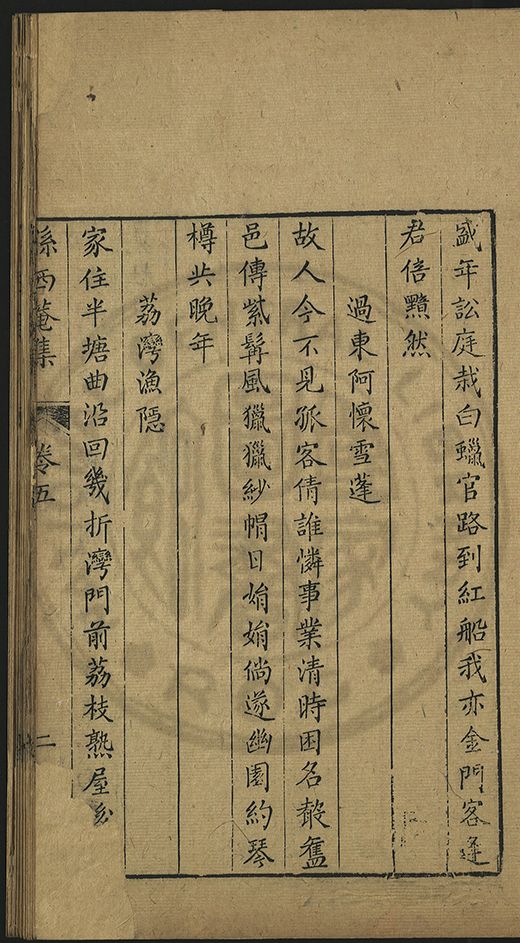 盛年訟庭栽白蠟官路到紅船我亦金門客逢
君倍黯然
過東阿懷雪蓬
故人今不見孤客倩誰憐事業清時困名赦舊
邑傳紫髯風獵獵紗帽日娟娟倘遂幽園約琴
樽共晚年
荔灣漁隱
家住半塘曲沿回幾折灣門前荔枝熟屋
西菴集
卷五
二